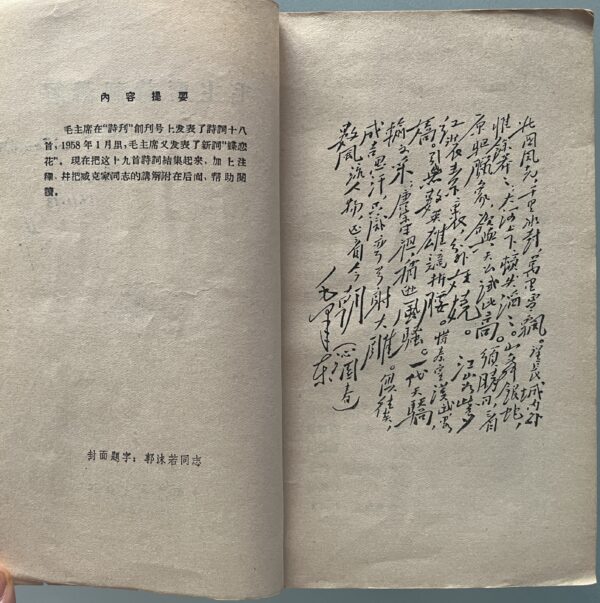 內容提要
毛主席在“詩刊”創刊号上发表了詩詞十八
首，1958年1月里，毛主席又发表了新詞“蝶恋
花”。現在把这十九首詩詞結集起来，加上注
釋，幷把臧克家同志的講解附在后面，帮助閱
讀。
封面題字：郭沫若同志
北国风光，千里冰封，萬里雪飘。望长城内外
惟余莽々。大河上下，頓失滔々。山舞銀蛇，
原驰腊象，欲與天公试比高。须晴日，看
红装素裹，分外妖娆。江山如此多
娇，引無数英雄竞折腰。惜秦皇漢武，略
输文采；唐宗宋祖，稍逊风骚。一代天驕，
成吉思汗，只识弯弓射大雕。俱往矣，
数风流人物，还看今朝（沁园春）
毛泽东